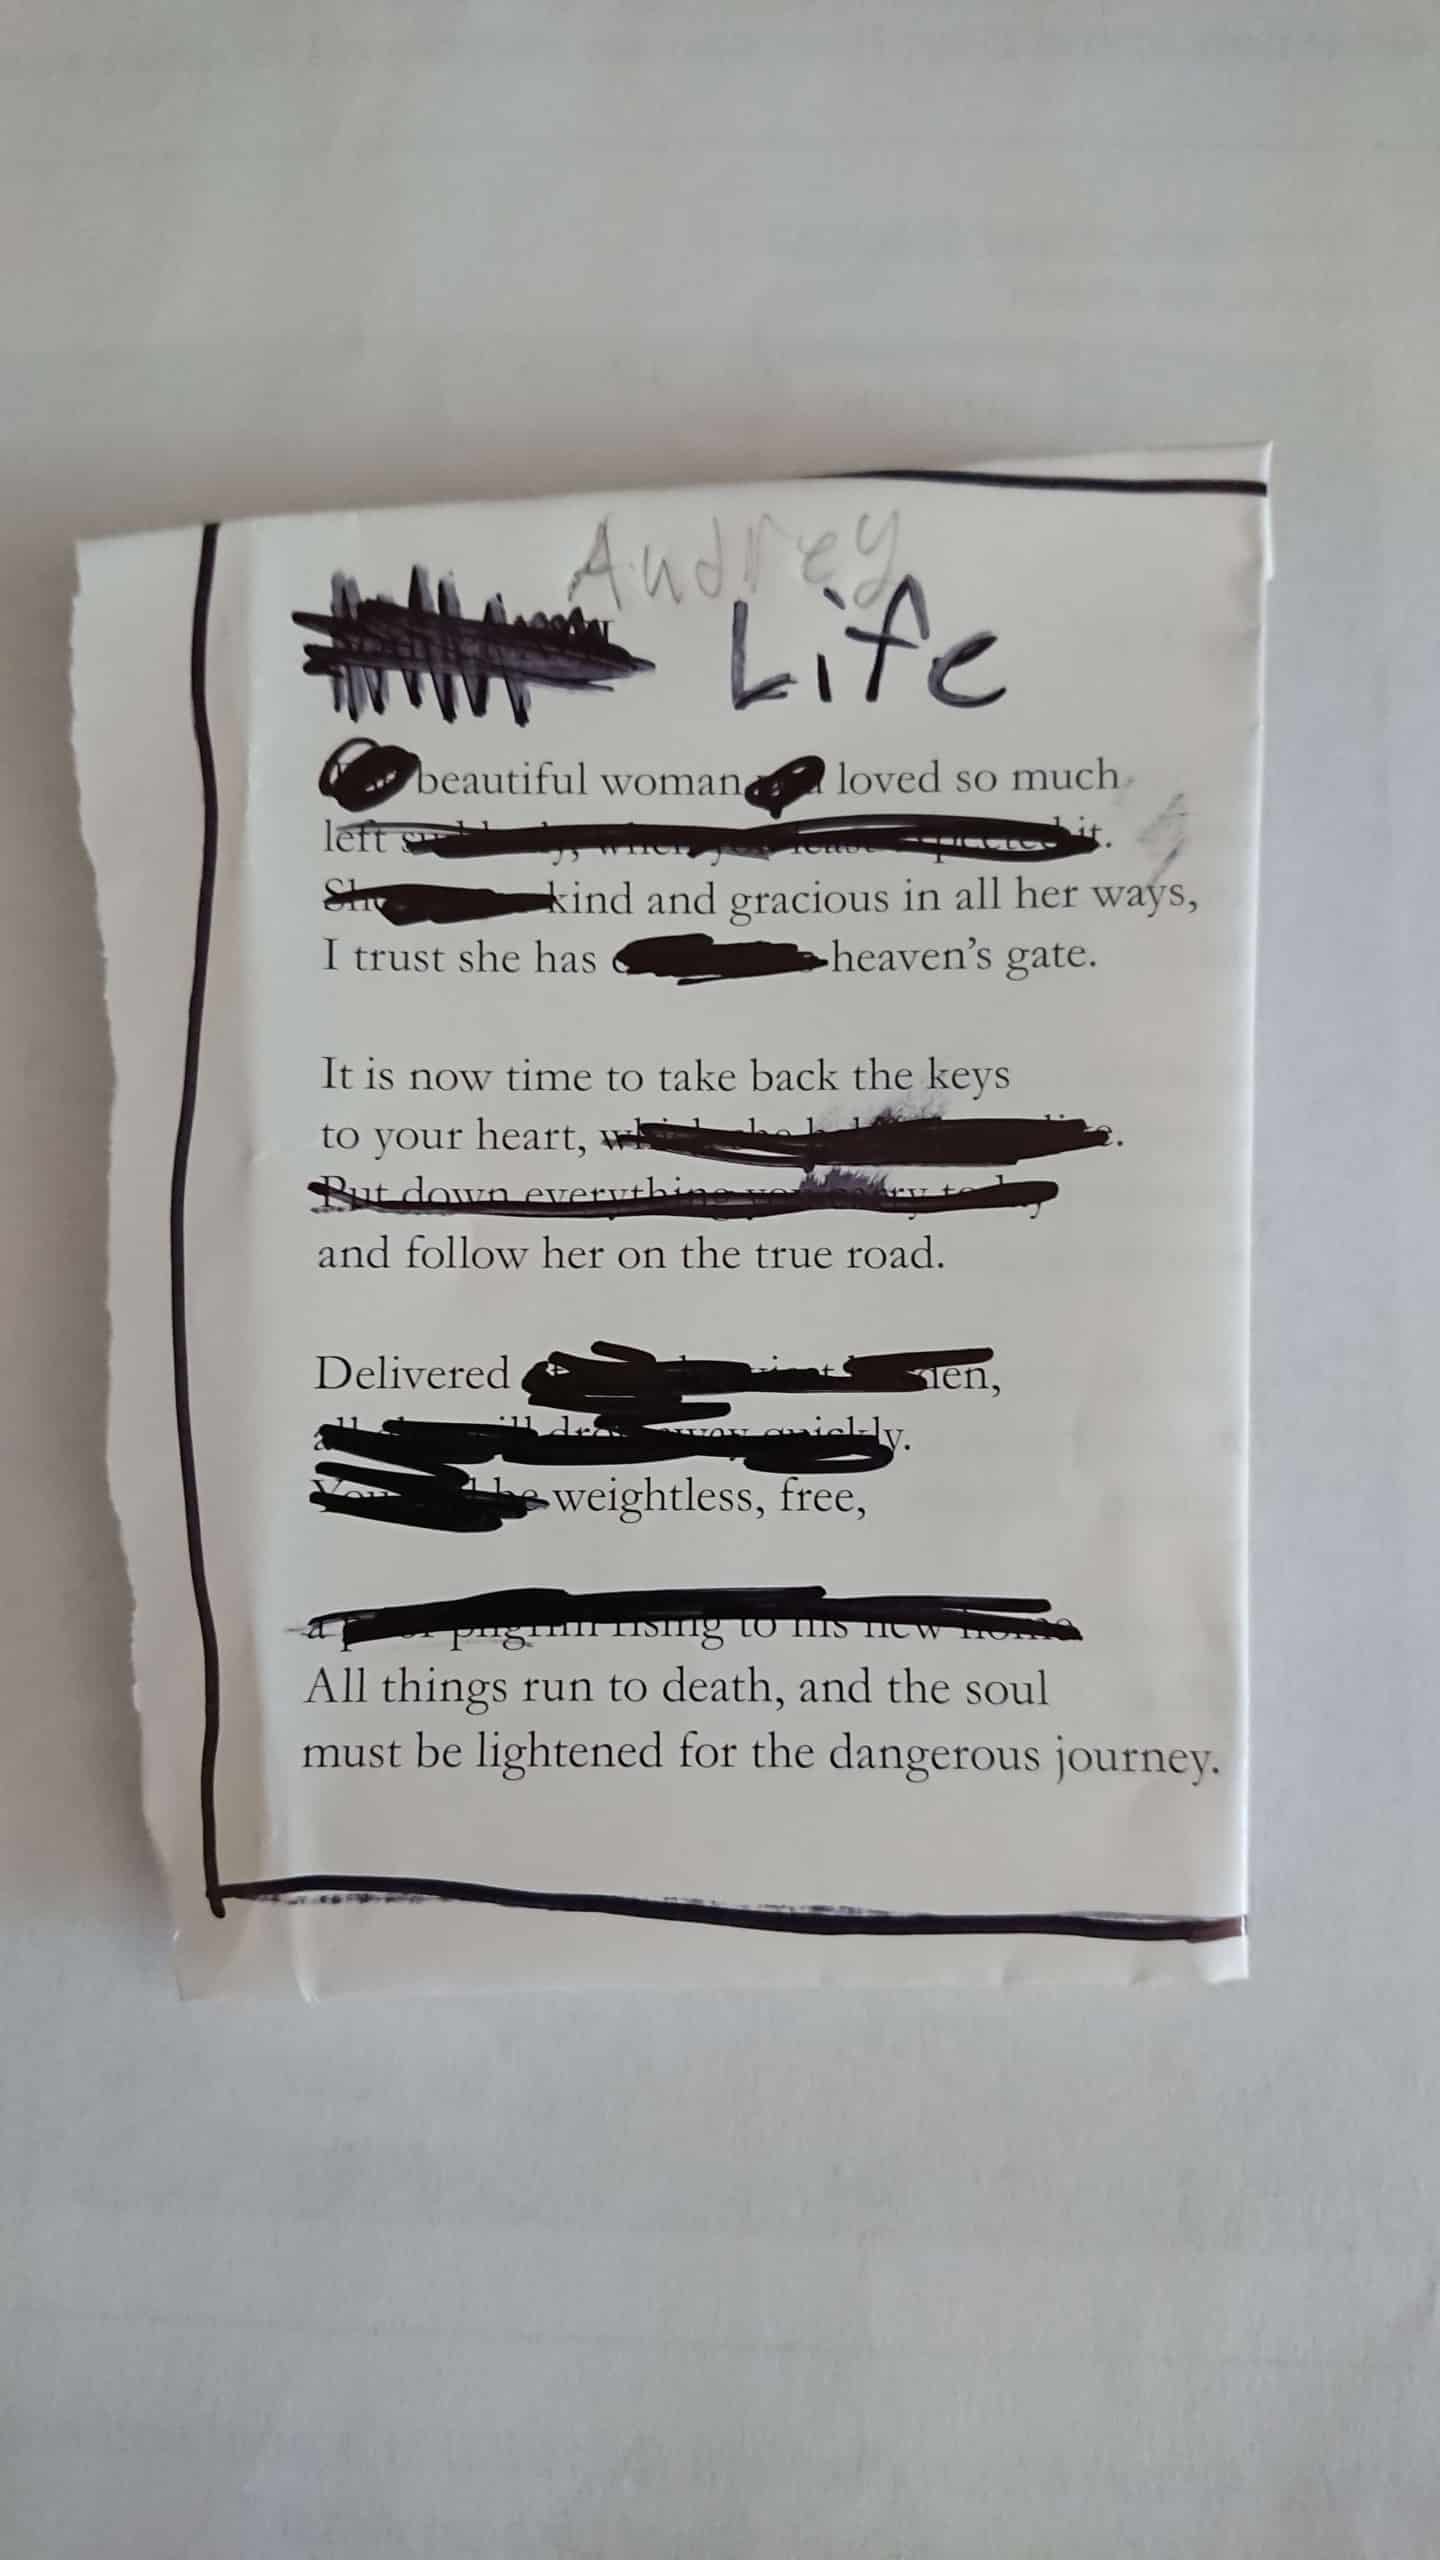 Audrey
Life
beautiful woman loved so much
left it.
kind and gracious in all her ways,
I trust she has heaven's gate.
It is now time to take back the keys
to your heart,
Put down everything
and follow her on the true road.
Delivered
quickly.
weightless, free,
a pilgrim rising to his new home
All things run to death, and the soul
must be lightened for the dangerous journey.